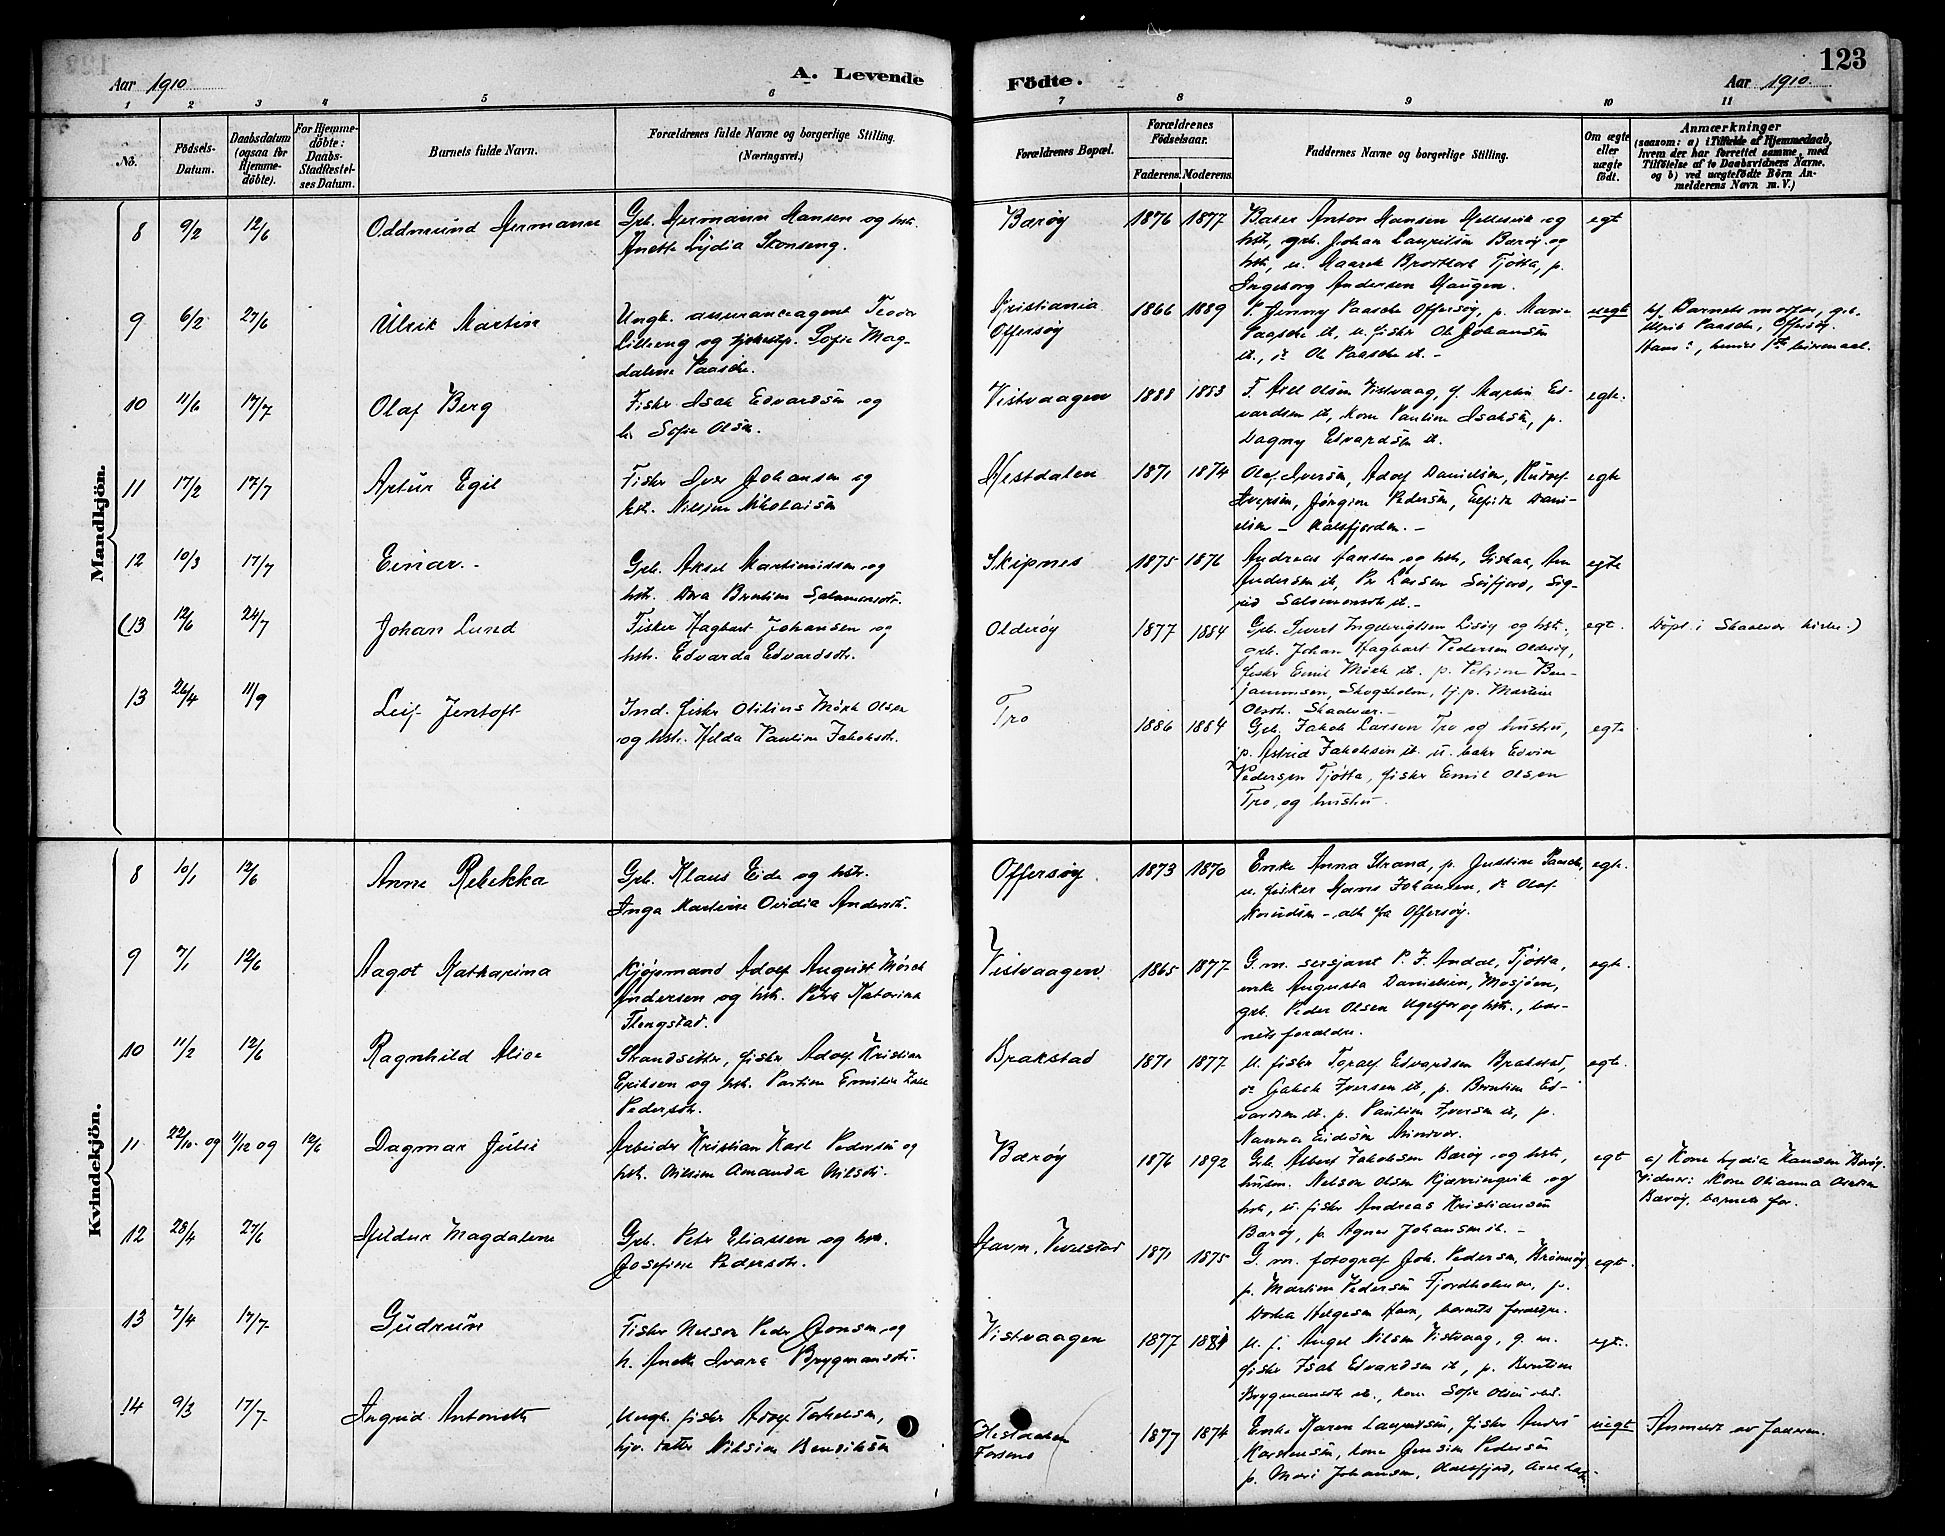 123
Aar 1910.
A. Levende
Födte.
Aar 1910.
1 2 3 4 5 6 7 8 9 10 11
No.
Födsels-
Datum.
Daabsdatum
(ogsaa for
Hjemme-
döbte).
For Hjemme-
döbte:
Daabs-
Stadfæstel-
ses Datum.
Barnets fulde Navn.
Forældrenes fulde Navne og borgerlige Stilling.
(Næringsvei.)
Forældrenes Bopæl.
Forældrenes
Födselsaar.
Faderens. Moderens.
Faddernes Navne og borgerlige Stilling.
Om ægte
eller
uægte
födt.
Anmærkninger
(saasom: a) i Tilfælde af Hjemmedaab,
hvem der har forrettet samme, med
Tilföielse af to Daabsvidners Navne,
og b) ved uægtefödte Börn An-
melderens Navn m. V.)
Mandkjön.
8 9/2 12/6 Oddmund Hermann
Grb. Hermann Hansen og hst.
Anette Lydia Stonseng.
Barøy 1876 1877
Baker Anton Hansen Hellesvik og
hst, grb. Johan Lauritsen Barøy og
hst, u. Haarek Brodtkorb Tjøtta, p.
Ingeborg Andersen Haugen.
egt
9 6/2 27/6 Ulrik Martin
Ungk. assuranceagent Teodor
Lillreng og tjenestp. Sofie Mag-
dalene Paasche.
Kristiania
Offersøy
1866 1889
P. Jenny Paasche Offersøy, p. Marie
Paasche it, u. fisker Ole Johansen
it., do Ole Paasche it. -
uegt
bf. Barnets morfar, grb.
Ulrik Paasche, Offersøy.
Hans 2, hendes 1ste leiermaal.
10 11/6 17/7 Olaf Berg
Fisker Isak Edvardsen og
h. Sofie Olsen.
Vistvaagen 1888 1883
F. Axel Olsen Vistvaag, f. Martin Ed-
vardsen it, kone Pauline Isaksen, p.
Dagny Edvardsen it.
egte.
11 17/2 17/7 Artur Egil
Fisker Iver Johansen og
hst. Nilsine Nikolaisen
Hestdalen 1871 1874
Olaf Iversen, Adolf Danielsen, Rudolf
Iversen, Jørgine Pedersen, Elfride Dani-
elsen - Halsfjorden. -
egte
12 10/3 17/7 Einar. -
Grb. Aksel Martinussen og
hst. Dora Berntine Salamonsdtr.
Skipnes 1875 1876
Andreas Hansen og hst, Giskaa, Ane
Andersen it, Per Larsen Seifjord, Sig-
rid Salomonsdtr it. -
egte
(13 12/6 24/7 Johan Lund
Fisker Hagbart Johansen og
hst. Edvarda Edvardsdtr.
Olderøy 1877 1884
Grb. Sivert Ingebrigtsen Lisøy og hst.,
grb. Johan Hagbart Pedersen Olderøy,
fisker Emil Mörk it. p. Petrine Ben-
jaminsen, Skogsholm, tj.p. Martine
Olsdtr. Skaalvær. -
egt.
Døpt i Skaalvær kirke.)
13 26/4 11/9 Leif Jentoft
Ind. fisker Otilius Mörk Olsen
og hst. Hilda Pauline Jakobsdtr.
Tro 1886 1884
Grb. Jakob Larsen Tro og hustru,
p. Astrid Jakobsen it. u. baker Edvin
Pedersen Tjøtta, fisker Emil Olsen
Tro, og hustru.
egte
Kvindekjön.
8 10/1 12/6 Anne Rebekka
Grb. Klaus Eide og hst.
Inga Martine Ovidia Andersdtr.
Offersøy. 1873 1870
Enke Anna Strand, p. Justine Paasche,
u. fisker Hans Johansen, do Olaf
Knudsen - alle fra Offersøy.
egte.
9 7/1 12/6 Aagot Katharina
Kjøpmand Adolf August Mörch
Andersen og hst. Petra Katarina
Flengstad.
Vistvaagen 1865 1877
G.m. sersjant P. J. Andal, Tjøtta,
enke Augusta Danielsen, Mosjøen,
grb. Peder Olsen Ugelfor og hst., bar-
nets forældre.
egte.
10 11/2 12/6 Ragnhild Alice
Strandsitter, fisker Adolf Kristian
Eriksen og hst. Partine Emilie
Pedersdtr.
Brakstad 1871 1877
U. fisker Toralf Edvardsen Brakstad,
do Jakob Iversen it, p. Berntine Ed-
vardsen it. p. Pauline Iversen it, p.
Nanna Eriksen Mindvær.
egte.
11 22/10 og 11/12 og 12/6 Dagmar Julie
Arbeider Kristian Karl Pedersen og
hst. Nilsine Amanda Nilsdtr.
Barøy 1876 1892
Grb. Albert Jakobsen Barøy og hst,
husm. Nelson Olsen Kjærringvik og
hst, u. fisker Andreas Kristiansen
Barøy, p. Agnes Johansen it. -
egt
a) Kone Lydia Hansen Barøy.
Vidner: Kone Olianna
Barøy, barnets far.
12 28/4 27/6 Hildur Magdalene
Grb. Peter Eliassen og hst.
Josefine Pedersdtr.
Havn, Vevelstad 1871 1875
G. m. fotograf Joh. Pedersen, Brønnøy,
p. Martine Pedersen Fjordholmen, p.
Dorthea Helgesen Havn, barnets forældre.
egt.
13 7/4 17/7 Gudrun
Fisker Nelson Peder Jonsen og
h. Anette Ivara Brygmansdtr.
Vistvaagen 1877 1881
U. f. Angel Nilsen Vistvaag, g. m.
fisker Isak Edvardsen it, p. Berntine
Brygmansdtr it., kone Sofie Olsen ibd.
egt.
14 9/3 17/7 Ingrid Antonette
Ungk. fisker Adolf Torkelsen,
hjv. datter Nilsine Benediksen
Hestdalen
Forsnes
1877 1874
Enke Karen Lauritsen, fisker Anders
Karstensen, kone Jensine Pedersen
p. Mari Johansen, Halsfjord,
uegt
Anmeldt av faderen.